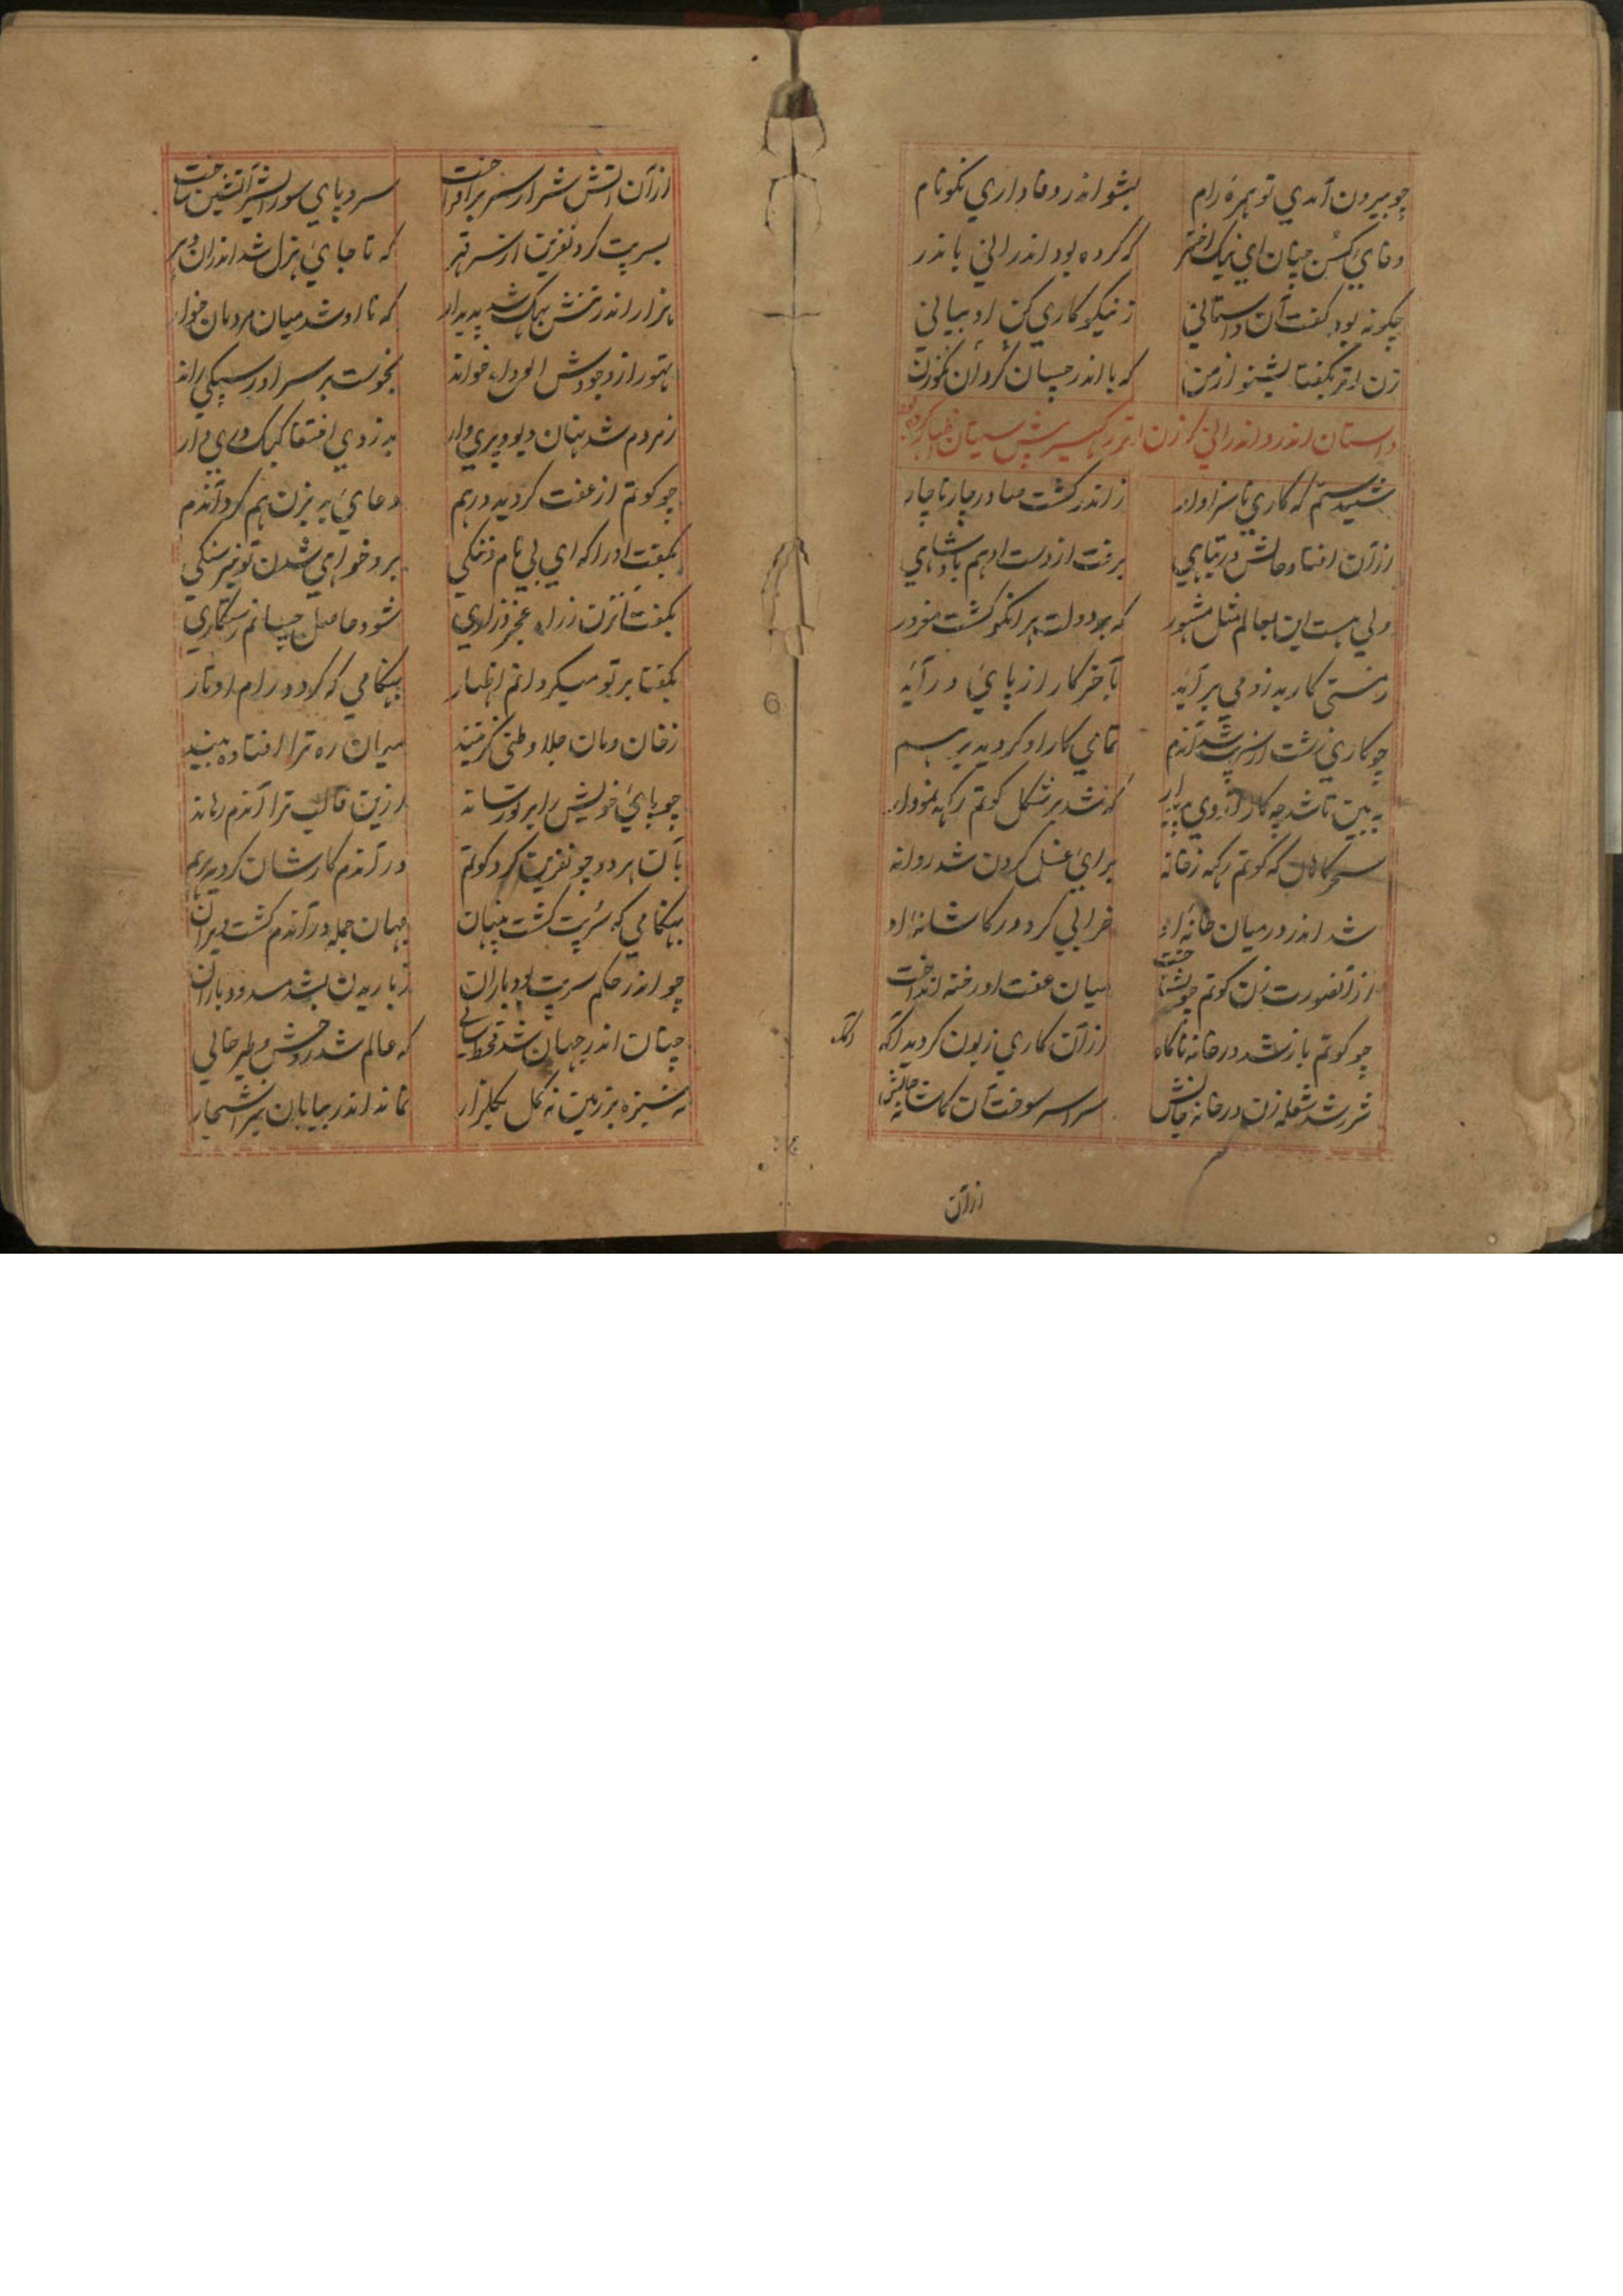 چو بیرون آمدي تو همره رام بشو اندر وفاداري نکونام
وفاي کن چنان اي نیک اختر که کرده بود اندراني با ندر
چکونه بود کفت آن داستاني ز نیکو کاري کن او بیاني
زن اتر بکفتا بشنو از من که با اندر چسان کرد آن نکوزن
داستان اندر و اندراني که زن اتر رکهیسر پیش سیتا اظهار کرده بود
شنیدستم که کاري ناسزاوار ز اندر کشت صادر چار ناچار
از آن افتاد حالش در تباهي برفت از دست او هم پادشاهي
ولي هست این بعالم مثل مشهور که بر دولت هر انکو کشت مغرور
ز مستي کار بد زو مي بر آید بآخر کار از پاي در آید
چو کاري زشت از سرپت شد آندم تمامي کار او کردید برهم
به بین تا شد چه کار از وي پدیدار که شد بر شکل کوتم رکهه نمودار
سحرکاهان که کوتم رکهه ز خانه براي غسل کردن شد روانه
شد اندر در میان خانه او خرابي کرد در کاشانه او
از آنصورت زن کوتم چو بشناخت میان عفت او رخنه انداخت
چو کوتم باز شد در خانه ناکاه از آن کاري زبون کردید آکه
شرر شد شعله زن در خانه جانش سراسر سوختآن کاشانه
از آن
از آن آتش شرار از سر بر افراخت سر و پاي سورالشیر آتشین ساخت
بسرپت کرد نفرین از سر قهر که تا جاي هزل شد اندران دهر
هزار اندر تنش بهک شد پدیدار که تا او شد میان مردمان خوار
تهور از وجودش الوداع خواند نحوست بر سر او رسیکي راند
ز مردم شد نهان دیو و پري وار به زدي اختفا کبک دري وار
چو کوتم از عفت کردید درهم دعاي بد بزن هم کرد آندم
بکفت او را که اي بي نام و ننکي برو خواهي شدن تو نیز سنکي
بکفت آنزن ز راه عجز و زاري شود حاصل چسانم رستکاري
بکفتا بر تو میکردانم اظهار بهنکامي که کردد رام اوتار
ز خان و مان جلا وطني کزیند میان ره ترا افتاده بیند
چو پاي خویش را بر تو رساند ازین قالب ترا آندم رهاند
بآن هر دو چو نفرین کرد کوتم در آندم کارشان کردید برهم
بهنکامي که سرپت کشت پنهان جهان جمله در آندم کشت ویران
چو اندر حکم سرپت بود باران ز باریدن بشد مسدود باران
چنان اندر جهان شد قحط سالي که عالم شد ز وحش و طیر خالي
نه سبزه بر زمین نه کل بکلزار نماند اندر بیابان نیز اشجار